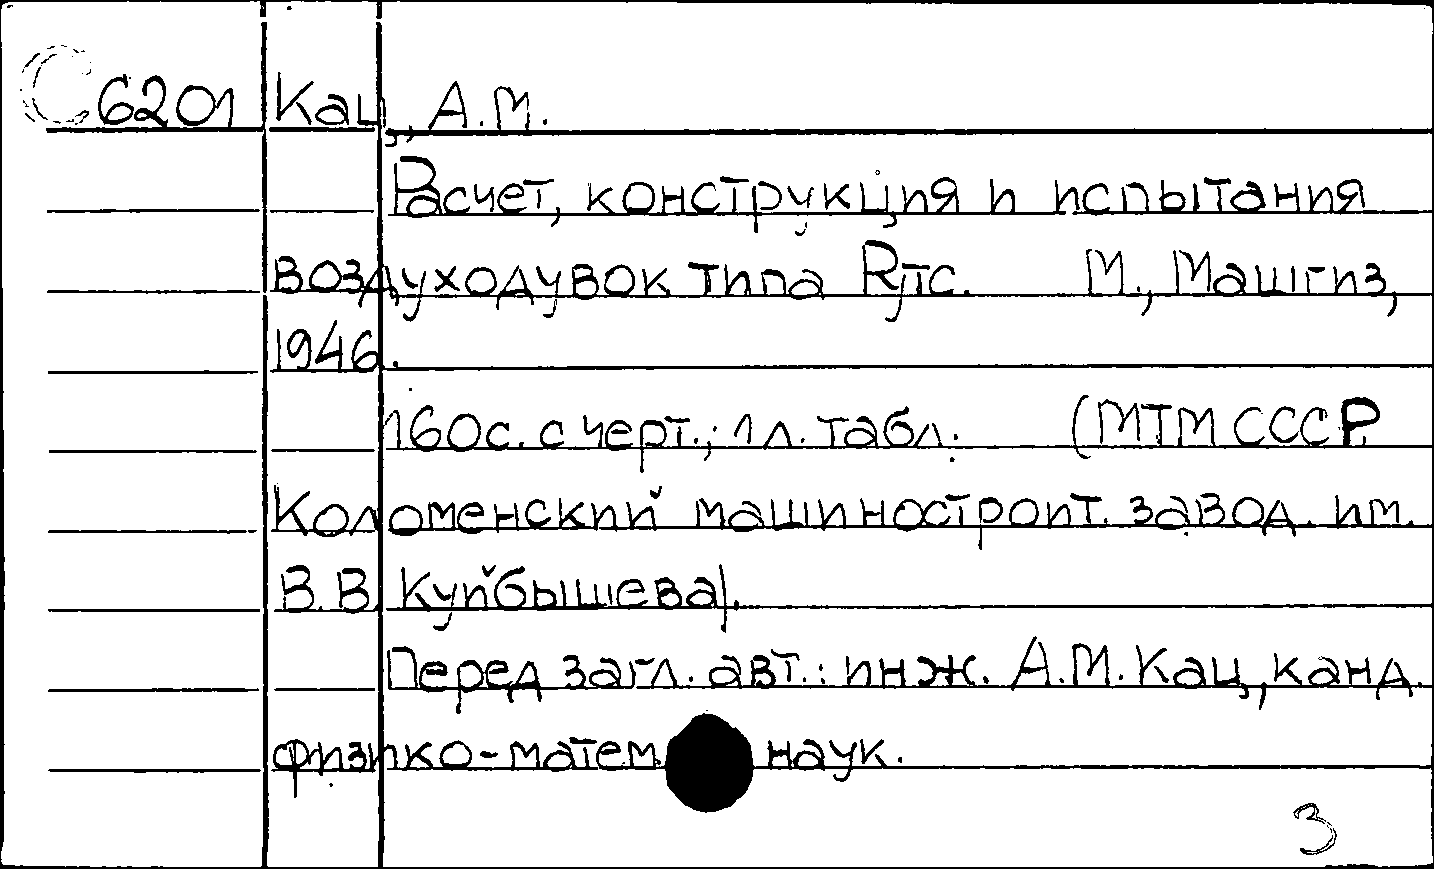 С 6201 Кац, А.М.
Расчет, конструкция и испытания
воздуходувок типа Rутс. М., Машгиз,
1946.
160с. с черт.; 1 л. табл. (МТМ СССР.
Коломенский машиностроит. завод. им.
В.В. Куйбышева).
Перед загл. авт.: инж. А.М. Кац, канд.
физико-матем. наук.
3